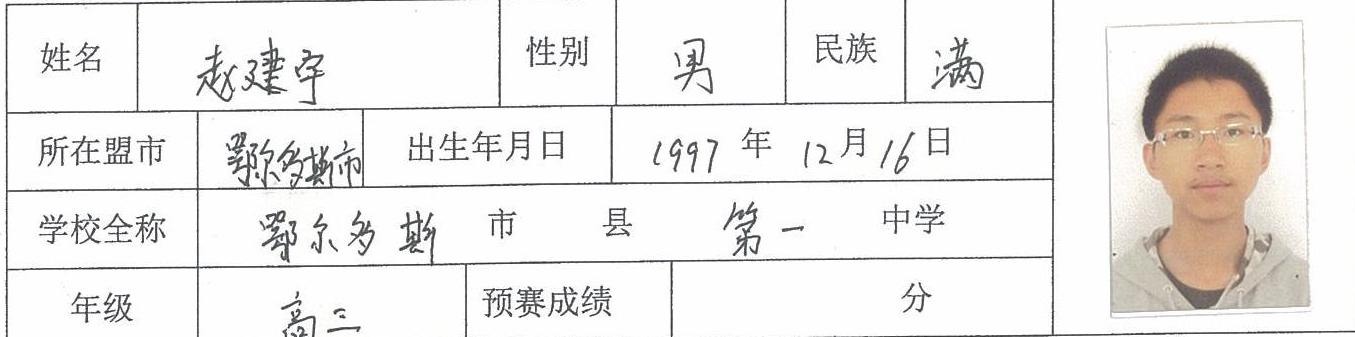 姓名 赵建宇 性别 男 民族 满
所在盟市 鄂尔多斯市 出生年月日 1997 年 12 月 16 日
学校全称 鄂尔多斯 市 县 第一 中学
年级 高三 预赛成绩 分